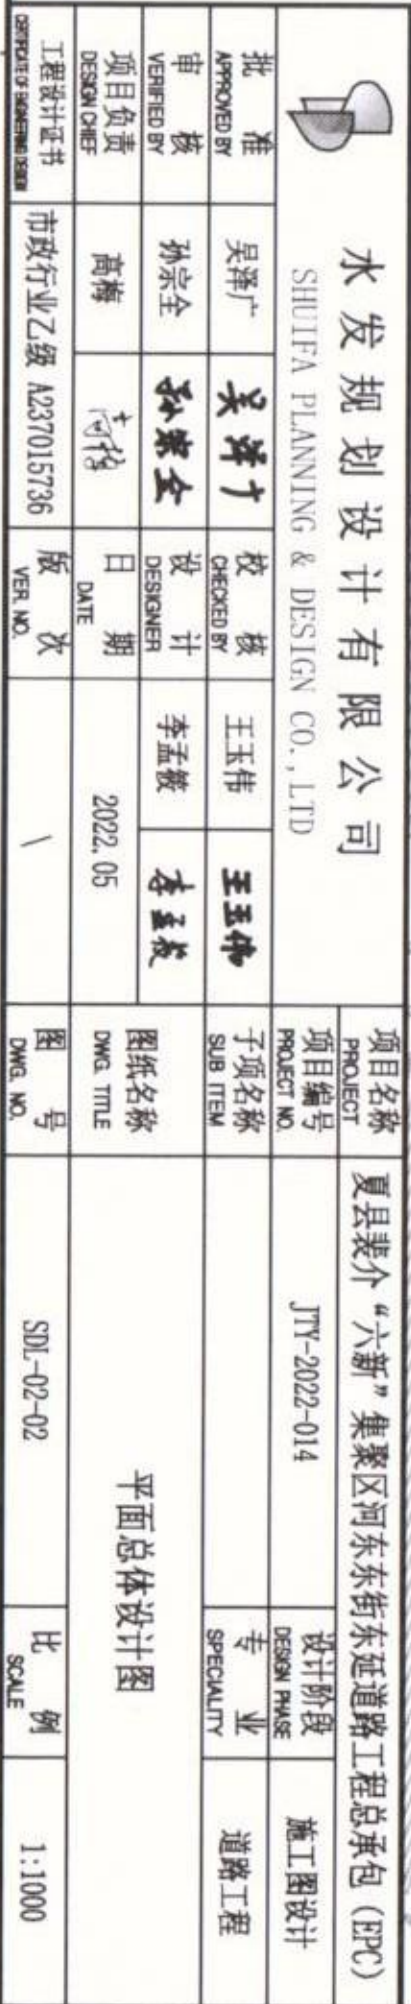 水发规划设计有限公司
SHUIFA PLANNING & DESIGN CO., LTD
批准
APPROVED BY
吴泽广
吴泽广
校核
CHECKED BY
王玉伟
王玉伟
审核
VERIFIED BY
孙宗全
孙宗全
设计
DESIGNER
李孟薇
李孟薇
项目负责
DESIGN CHIEF
高梅
高梅
日期
DATE
2022.05
工程设计证书
CERTIFICATE OF ENGINEERING DESIGN
市政行业乙级 A237015736
版次
VER. NO.
\
项目名称
PROJECT
夏县裴介“六新”集聚区河东东街东延道路工程总承包(EPC)
项目编号
PROJECT NO.
JTY-2022-014
设计阶段
DESIGN PHASE
施工图设计
子项名称
SUB ITEM
专业
SPECIALITY
道路工程
图纸名称
DWG. TITLE
平面总体设计图
图号
DWG. NO.
SDL-02-02
比例
SCALE
1:1000